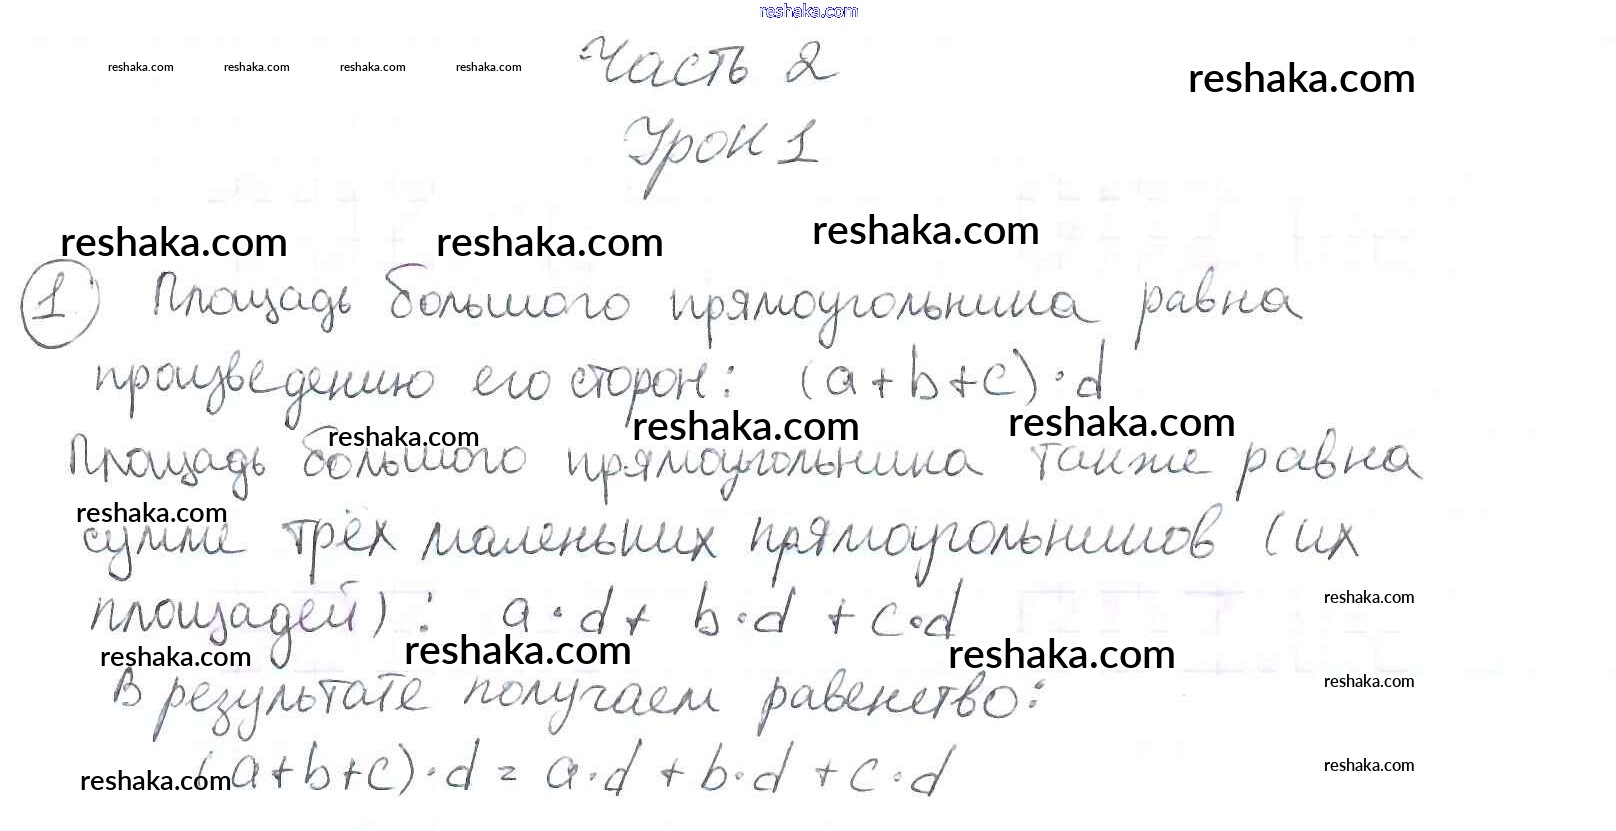 reshaka.com
Часть 2
reshaka.com reshaka.com reshaka.com reshaka.com
reshaka.com
Урок 1
reshaka.com reshaka.com reshaka.com
1 Площадь большого прямоугольника равна
произведению его сторон: (a+b+c)·d
reshaka.com reshaka.com reshaka.com
Площадь большого прямоугольника также равна
reshaka.com
сумме трёх маленьких прямоугольников (их
площадей): a·d + b·d + c·d
reshaka.com
reshaka.com reshaka.com reshaka.com
В результате получаем равенство:
reshaka.com
(a+b+c)·d = a·d + b·d + c·d
reshaka.com reshaka.com